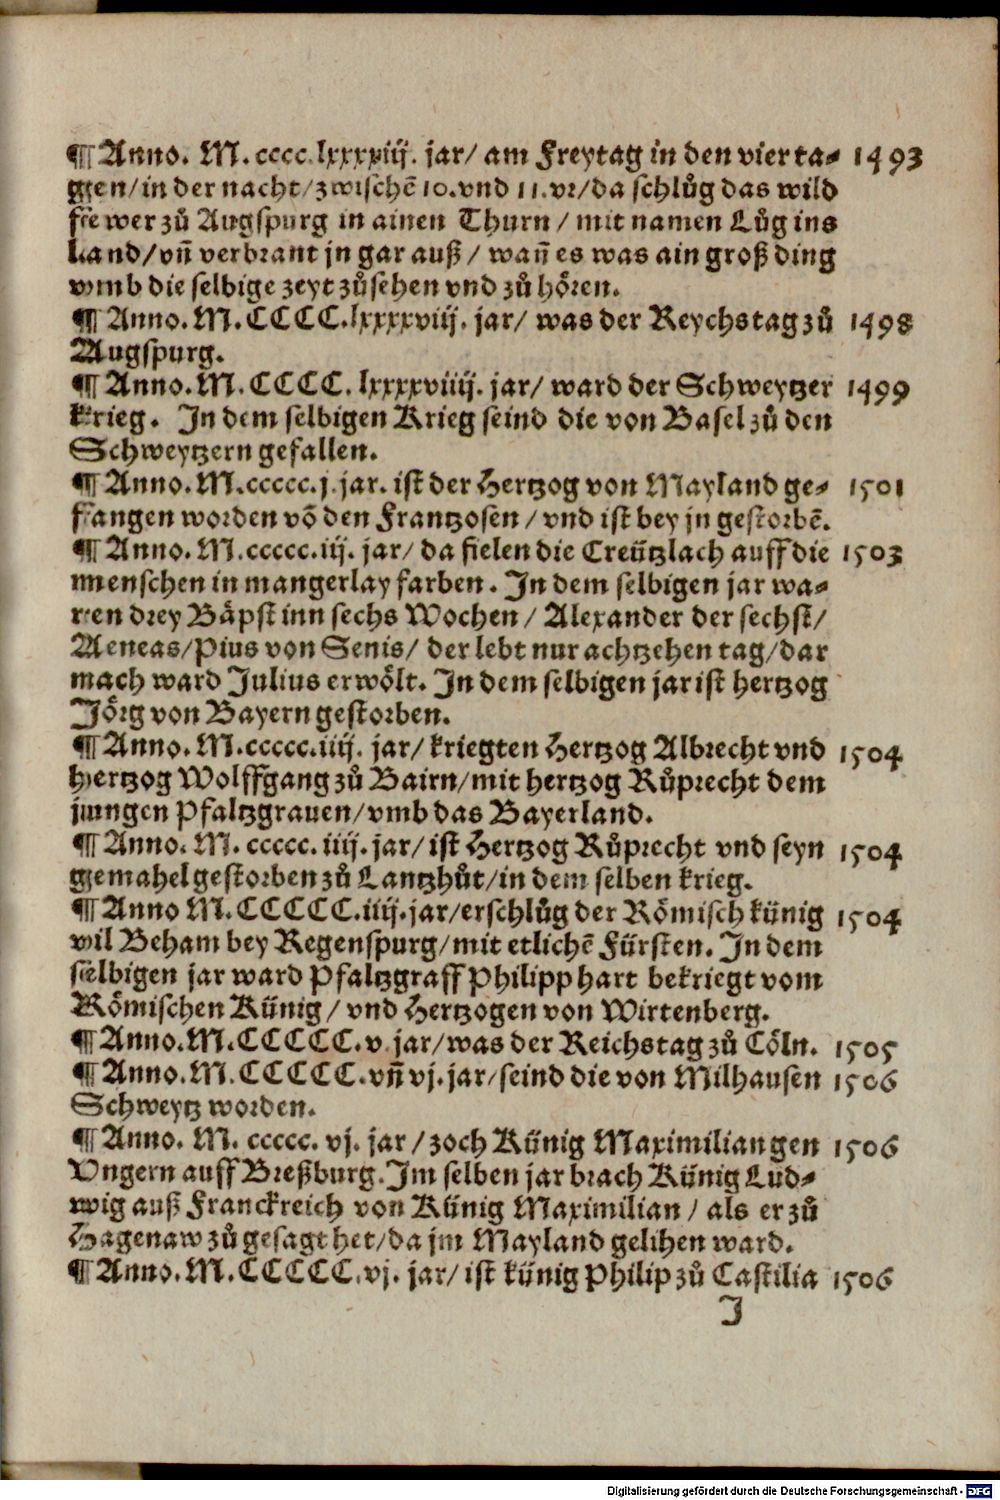 ¶ Anno. M. cccc. lxxxxiij. jar/ am Freytag in den vierta⸗ 1493
gen/in der nacht/zwischē 10.vnd 11.vr/da schlůg das wild
fewer zů Augspurg in ainen Thurn/ mit namen Lůg ins
Land/vñ verbrant jn gar auß/ wañ es was ain groß ding
vmb die selbige zeyt zůsehen vnd zů hören.
¶ Anno. M. CCCC.lxxxxviij. jar/ was der Reychstag zů 1498
Augspurg.
¶ Anno. M. CCCC. lxxxxviiij. jar/ ward der Schweytzer 1499
krieg. In dem selbigen Krieg seind die von Basel zů den
Schweytzern gefallen.
¶ Anno. M.ccccc.j.jar. ist der Hertzog von Mayland ge⸗ 1501
fangen worden vō den Frantzosen/vnd ist bey jn gestorbē.
¶ Anno. M.ccccc.iij. jar/ da fielen die Creützlach auff die 1503
menschen in mangerlay farben. In dem selbigen jar wa⸗
ren drey Bäpst inn sechs Wochen/ Alexander der sechst/
Aeneas/Pius von Senis/ der lebt nur achtzehen tag/dar
nach ward Julius erwölt. In dem selbigen jar ist hertzog
Jörg von Bayern gestorben.
¶ Anno. M.ccccc.iiij. jar/ kriegten Hertzog Albrecht vnd 1504
hertzog Wolffgang zů Bairn/mit hertzog Růprecht dem
jungen Pfaltzgrauen/vmb das Bayerland.
¶ Anno. M. ccccc. iiij. jar/ ist Hertzog Růprecht vnd seyn 1504
gemahel gestorben zů Lantzhůt/in dem selben krieg.
¶ Anno M. CCCCC.iiij.jar/erschlůg der Römisch künig 1504
vil Beham bey Regenspurg/mit etlichē Fürsten. In dem
selbigen jar ward Pfaltzgraff Philipp hart bekriegt vom
Römischen Künig/ vnd Hertzogen von Wirtenberg.
¶ Anno. M. CCCCC. v jar/was der Reichstag zů Cöln. 1505
¶ Anno. M. CCCCC. vñ vj. jar/seind die von Milhausen 1506
Schweytz worden.
¶ Anno. M. ccccc. vj. jar/zoch Künig Maximilian gen 1506
Vngern auff Breßburg. Im selben jar brach Künig Lud⸗
wig auß Franckreich von Künig Maximilian/ als er zů
Hagenaw zů gesagt het/da jm Mayland gelihen ward.
¶ Anno. M. CCCCC. vj. jar/ ist künig Philip zů Castilia 1506
J
Digitalisierung gefördert durch die Deutsche Forschungsgemeinschaft - DFG